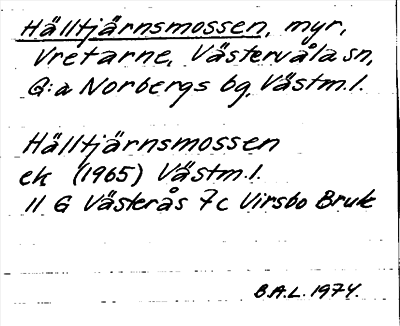 Hälltjärnsmossen, myr,
Vretarne, Västervåla sn,
G:a Norbergs bg, Västm.l.
Hälltjärnsmossen
ek (1965) Västm.l.
11 G Västerås 7c Virsbo Bruk
B.A.L. 1974.